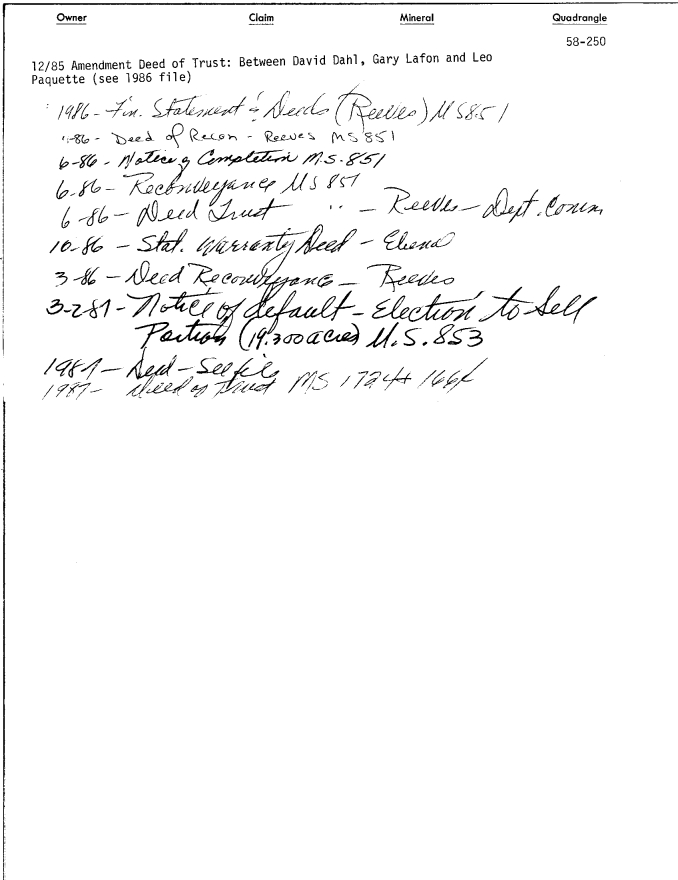 Owner Claim Mineral Quadrangle
58-250
12/85 Amendment Deed of Trust: Between David Dahl, Gary Lafon and Leo
Paquette (see 1986 file)
1986 - Fin. Statement & Deeds (Reeves) MS851
-86 - Deed of Recon - Reeves MS 851
6-86 - Notice of Completion M.S. 851
6-86 - Reconveyance MS 851
6-86 - Deed Trust " - Reeves - Dept. Comm
10-86 - Stat. Warranty Deed -
3-86 - Deed Reconveyance - Reeves
3-2-87 - Notice of default - Election to Sell
Portion (19.300 acres) M.S. 853
1987 - Deed - See file
1987 - Deed of Trust MS 1724